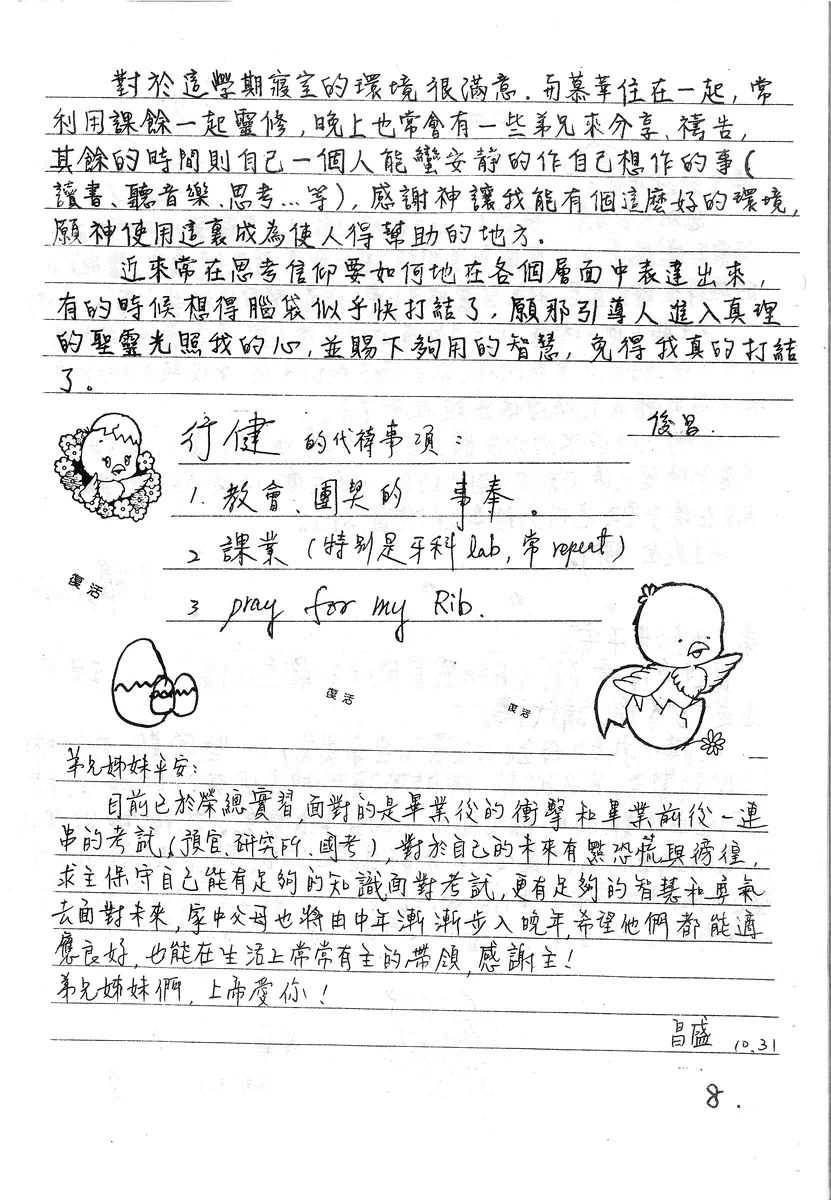 對於這學期寢室的環境很滿意.與慕華住在一起,常
利用課餘一起靈修,晚上也常會有一些弟兄來分享、禱告,
其餘的時間則自己一個人能蠻安靜的作自己想作的事(
讀書、聽音樂、思考...等),感謝神讓我能有個這麼好的環境,
願神使用這裏成為使人得幫助的地方。
近來常在思考信仰要如何地在各個層面中表達出來,
有的時候想得腦袋似乎快打結了,願那引導人進入真理
的聖靈光照我的心,並賜下夠用的智慧,免得我真的打結
了。
俊呂.
行健 的代禱事項:
1. 教會、團契的 事奉。
2 課業(特别是牙科lab,常repeat)
3 pray for my Rib.
復活
復活
復活
弟兄姊妹平安:
目前已於榮總實習,面對的是畢業後的衝擊和畢業前後一連
串的考試(預官、研究所、國考),對於自己的未來有點恐慌與徬徨,
求主保守自己能有足夠的知識面對考試,更有足夠的智慧和勇氣
去面對未來,家中父母也將由中年漸漸步入晚年,希望他們都能適
應良好,也能在生活上常常有主的帶領,感謝主!
弟兄姊妹們,上帝愛你!
昌盛 10.31
8.